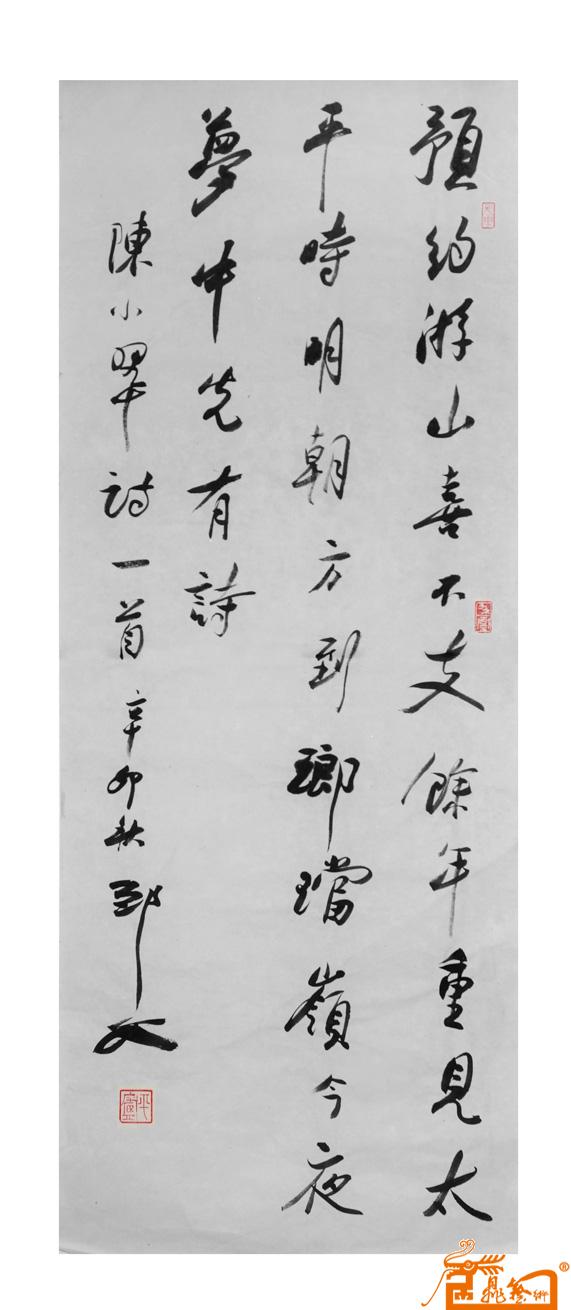 預約游山喜不支餘年重見太
平時明朝方到瑯璫嶺今夜
夢中先有詩
陳小翠詩一首辛卯秋